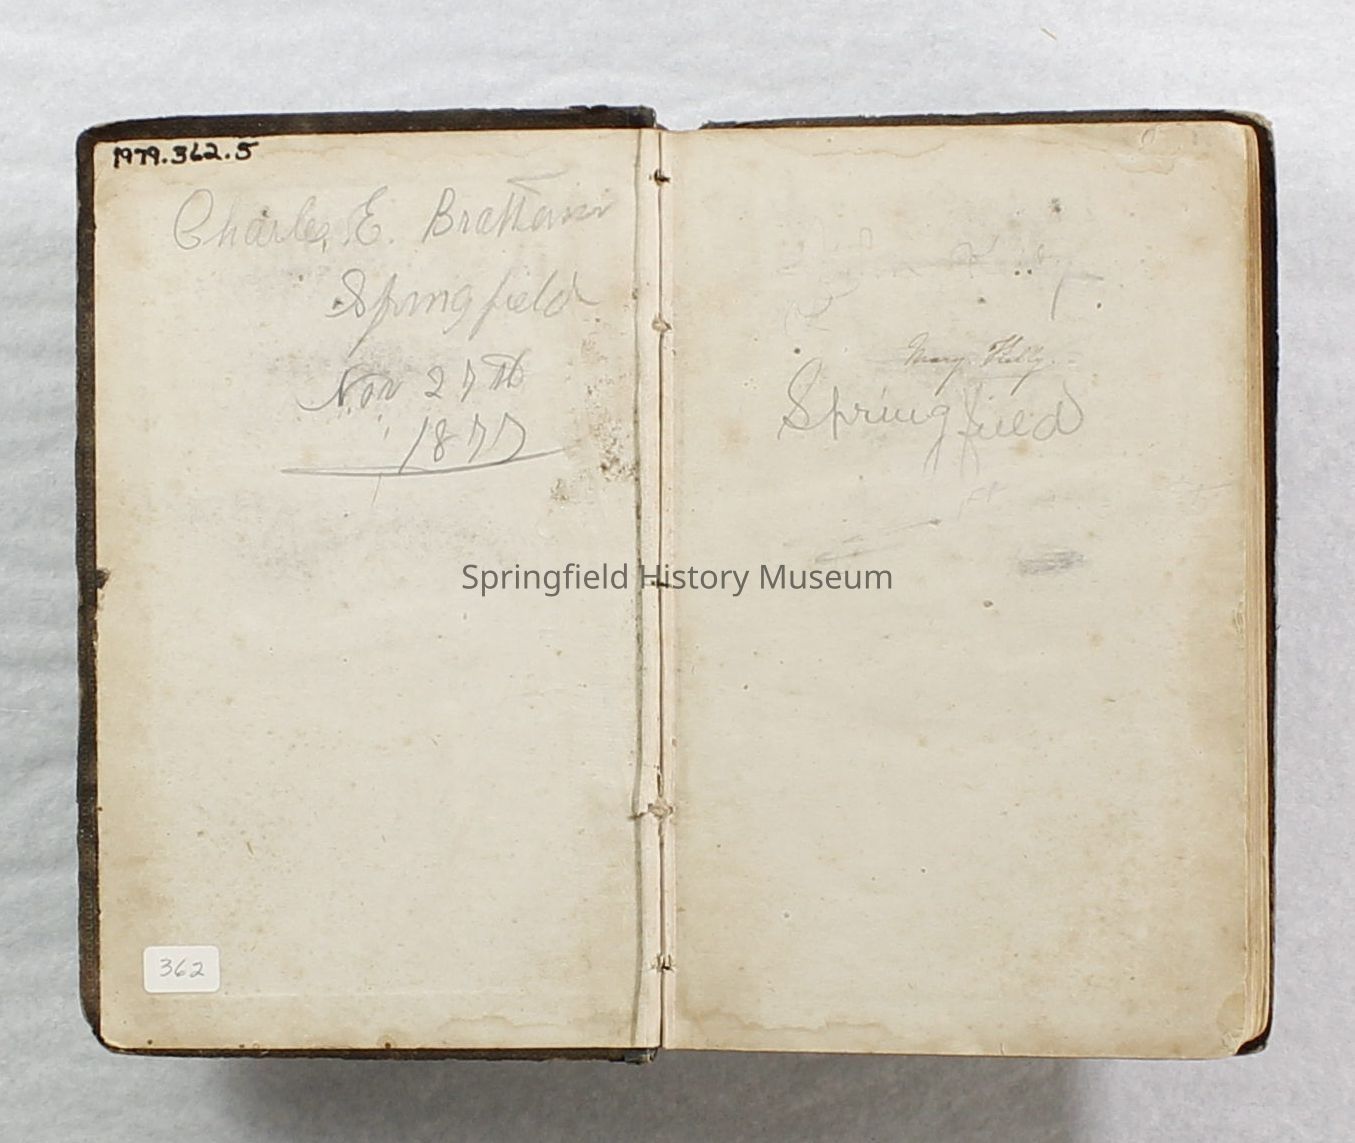 1979.362.5
Charles E. Brattain
Springfield
Nov 27th
1877
Mary Kelly.
Springfield
Springfield History Museum
362